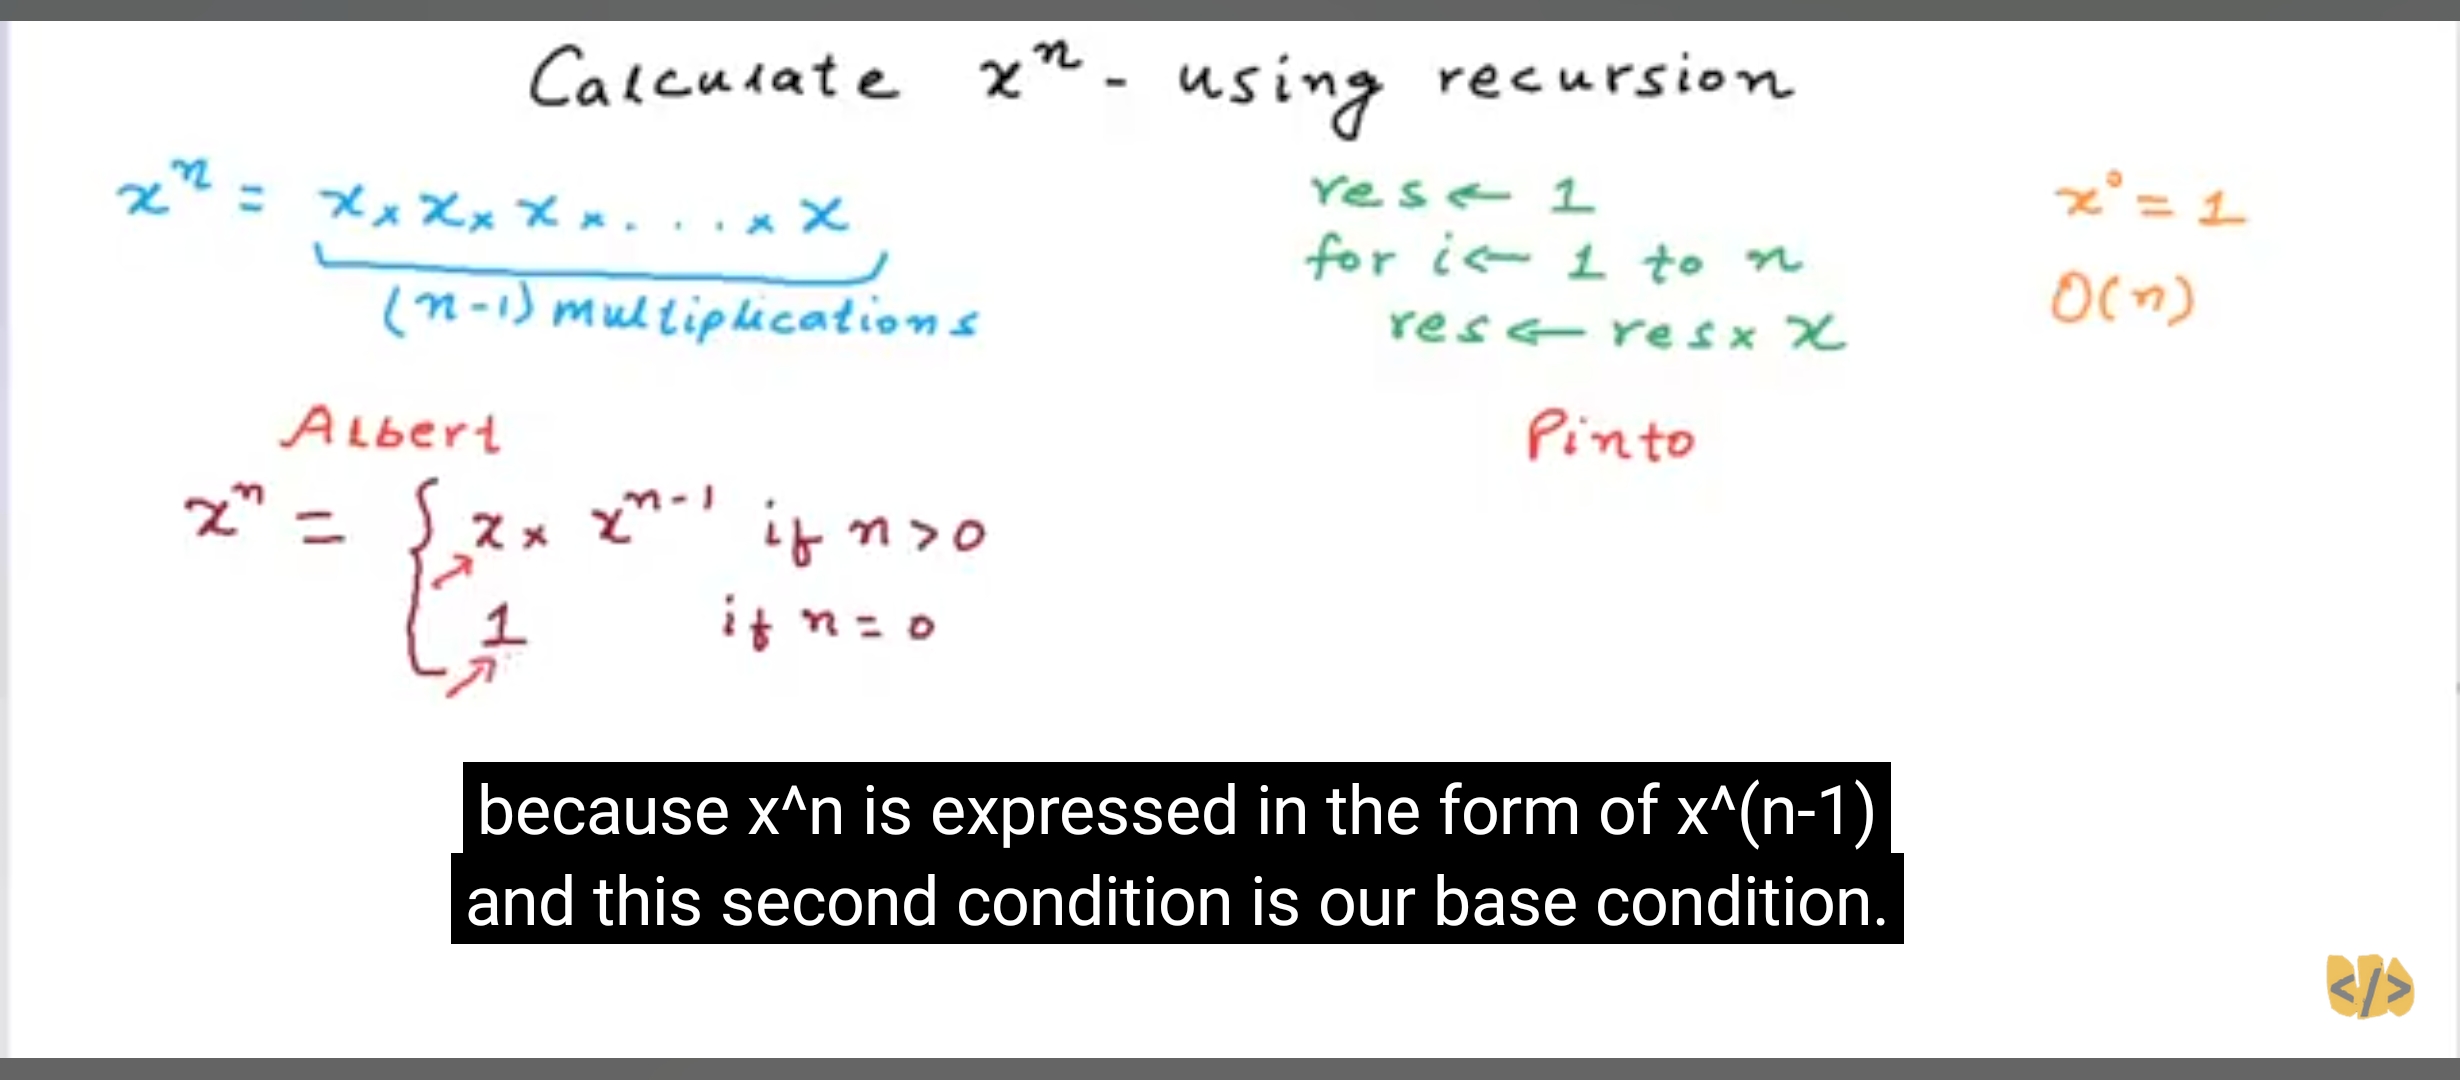 Calculate xⁿ - using recursion
xⁿ = x × x × x × . . . . × x
(n-1) multiplications
res ← 1
for i ← 1 to n
res ← res × x
x⁰ = 1
O(n)
Albert
xⁿ = { x × xⁿ⁻¹ if n > 0
1 if n = 0
Pinto
because x^n is expressed in the form of x^(n-1)
and this second condition is our base condition.
</>